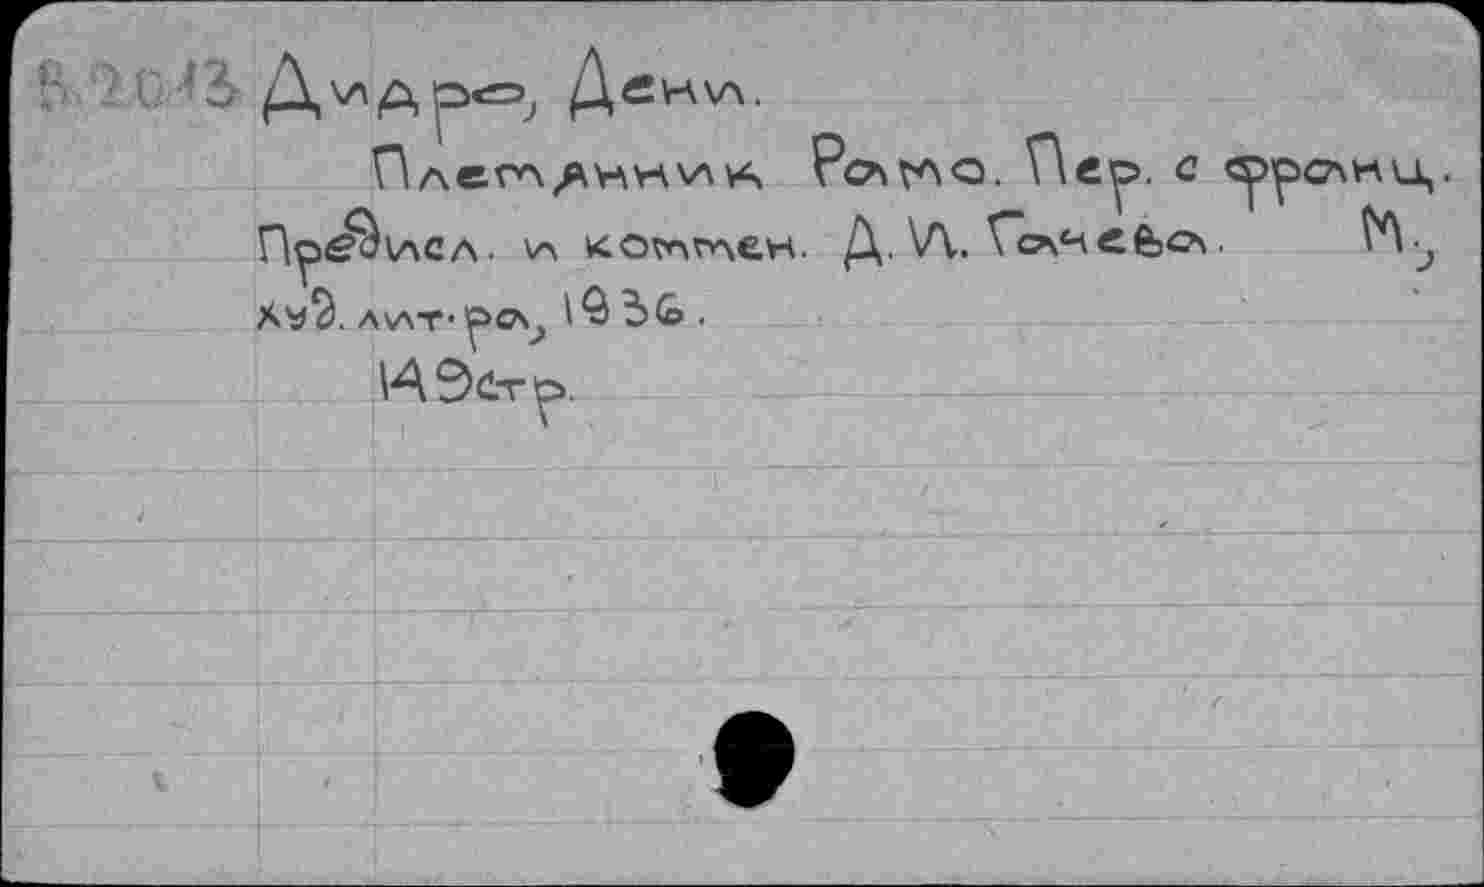 Дидро, Дени.
Племянник Рамо. Пер. с франц.
Предисл. и коммен. Д. И. Гачева. М.,
худ. лит-ра, 1936.
149стр.